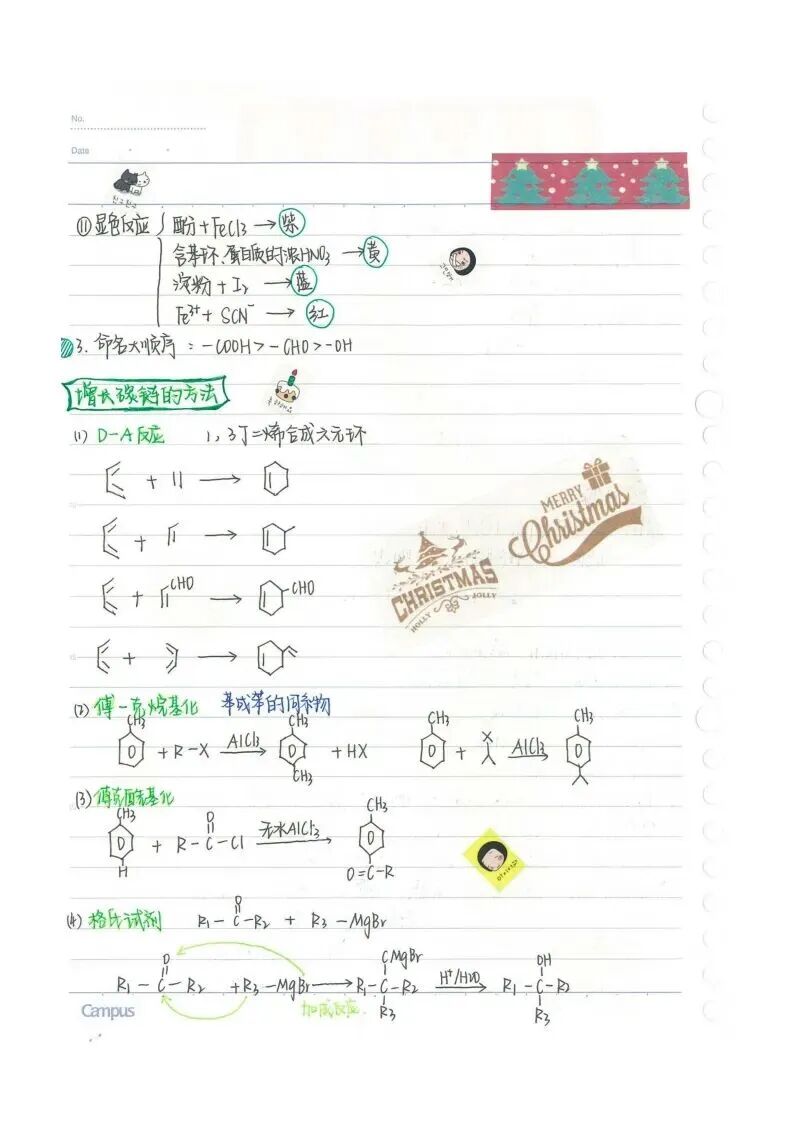 No.
Date
⑪显色反应 { 酚 + FeCl3 → 紫
含苯环、蛋白质的浓HNO3 → 黄
淀粉 + I2 → 蓝
Fe³⁺ + SCN⁻ → 红
3. 命名大顺序：-COOH > -CHO > -OH
增长碳链的方法
(1) D-A反应 1,3丁二烯合成六元环
+ →
+ →
+ CHO → CHO
+ →
(2) 傅-克烷基化 苯成苯的同系物
CH3 + R-X AlCl3→ CH3 CH3 + HX CH3 + X AlCl3→ CH3
(3) 傅克酰基化
CH3 H + R-C(=O)-Cl 无水AlCl3→ CH3 O=C-R
(4) 格氏试剂 R1-C(=O)-R2 + R3-MgBr
R1-C(=O)-R2 + R3-MgBr → R1-C(OMgBr)(R3)-R2 H⁺/H2O→ R1-C(OH)(R3)-R2
加成反应
Campus
MERRY
Christmas
CHRISTMAS
HOLLY JOLLY